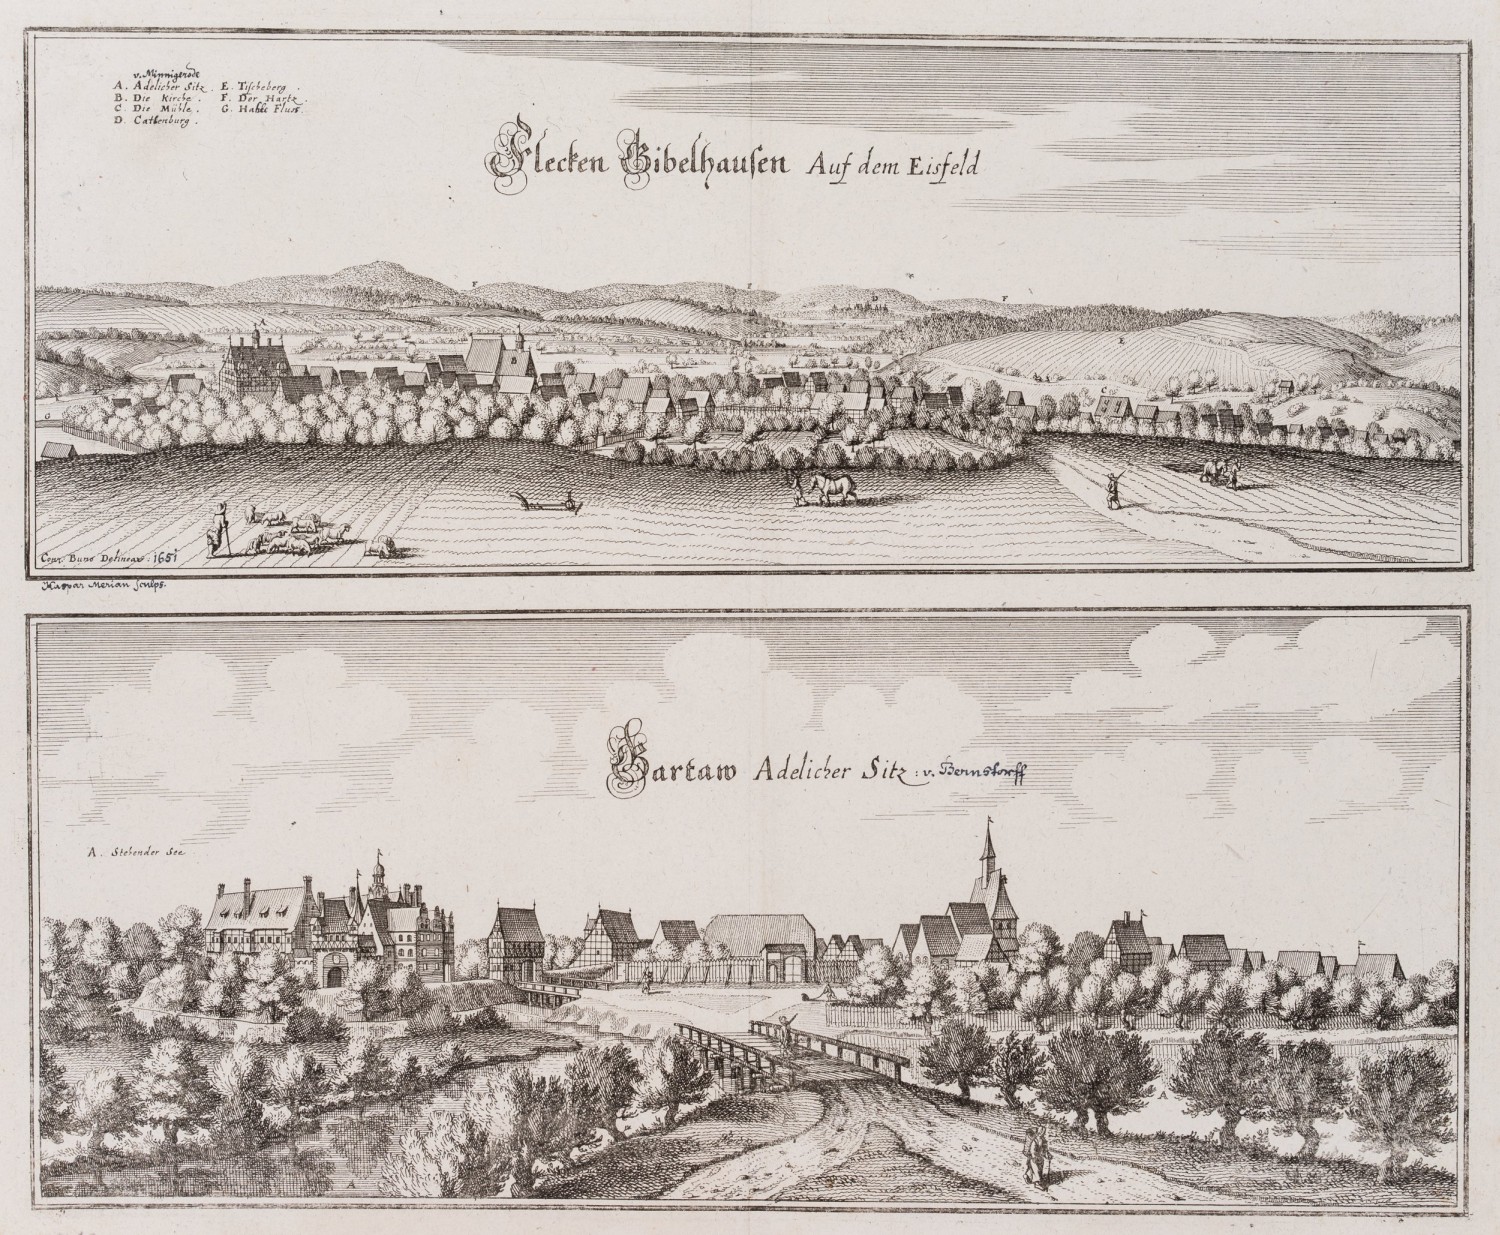 v. Minnigerode
A. Adelicher Sitz. E. Tischeberg.
B. Die Kirche. F. Der Hartz.
C. Die Mühle. G. Hahle Fluss.
D. Catlenburg.
Flecken Gibelhausen Auf dem Eisfeld
A
F
F
D
F
E
C
G
Conr. Buno Delineav: 1651
Kaspar Merian Sculps.
Gartaw Adelicher Sitz: v. Bernstorff
A. Stehender See
A
A